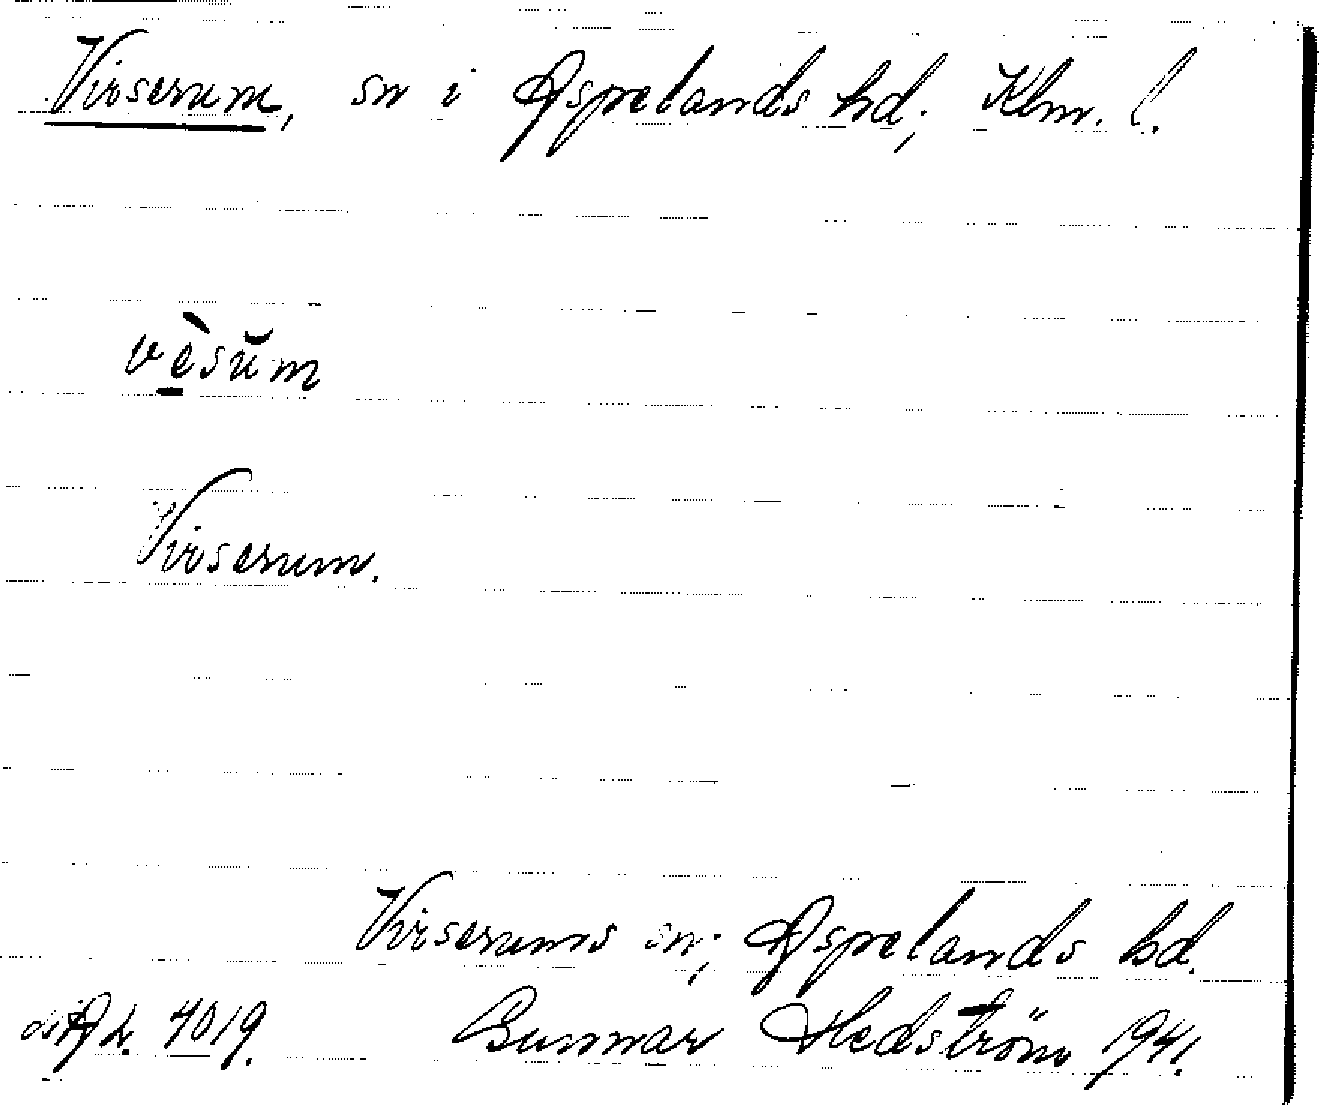 Virserum, sn i Aspelands hd, Klm. l.
vèsŭm
Virserum.
Virserums sn; Aspelands hd.
4019. Gunnar Hedström 1941.